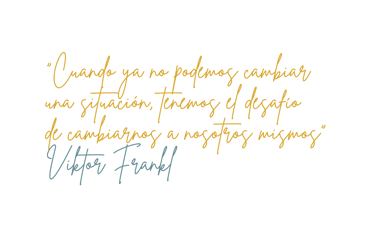 "Cuando ya no podemos cambiar
una situación, tenemos el desafío
de cambiarnos a nosotros mismos"
Viktor Frankl